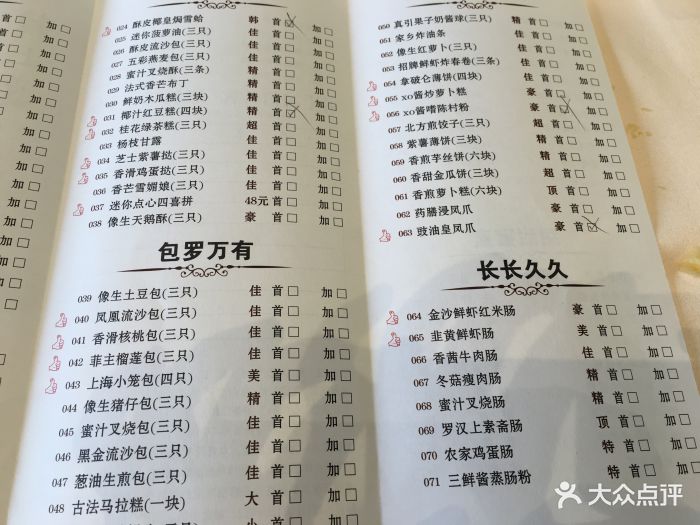 加□
加□
加□
加□
加□
加□
加□
加□
加□
加□
加□
加□
加□
加□
024 酥皮椰皇焗雪蛤 韩 首□ 加□
025 迷你菠萝油(三只) 佳 首□ 加□
026 酥皮流沙包(三只) 佳 首□ 加□
027 五彩燕麦包(三只) 佳 首□ 加□
028 蜜汁叉烧酥(三条) 精 首□ 加□
029 法式香芒布丁 精 首□ 加□
030 鲜奶木瓜糕(三块) 精 首□ 加□
031 椰汁红豆糕(四块) 精 首□ 加□
032 桂花绿茶糕(三只) 超 首□ 加□
033 杨枝甘露 佳 首□ 加□
034 芝士紫薯挞(三只) 佳 首□ 加□
035 香滑鸡蛋挞(三只) 佳 首□ 加□
036 香芒雪媚娘(三只) 佳 首□ 加□
037 迷你点心四喜拼 48元 首□ 加□
038 像生天鹅酥(三只) 豪 首□ 加□
包罗万有
039 像生土豆包(三只) 佳 首□ 加□
040 凤凰流沙包(三只) 佳 首□ 加□
041 香滑核桃包(三只) 佳 首□ 加□
042 菲主榴莲包(三只) 佳 首□ 加□
043 上海小笼包(四只) 美 首□ 加□
044 像生猪仔包(三只) 精 首□ 加□
045 蜜汁叉烧包(三只) 佳 首□ 加□
046 黑金流沙包(三只) 佳 首□ 加□
047 葱油生煎包(三只) 佳 首□ 加□
048 古法马拉糕(一块) 大 首□ 加□
小 首□ 加□
050 真引果子奶酱球(三只) 精 首□ 加□
051 家乡炸油条 佳 首□ 加□
052 像生红萝卜(三只) 佳 首□ 加□
053 招牌鲜虾炸春卷(三条) 精 首□ 加□
054 拿破仑薄饼(四块) 佳 首□ 加□
055 xo酱炒萝卜糕 豪 首□ 加□
056 xo酱嗜陈村粉 豪 首□ 加□
057 北方煎饺子(三只) 超 首□ 加□
058 紫薯薄饼(三块) 精 首□ 加□
059 香煎芋丝饼(六块) 精 首□ 加□
060 香甜金瓜饼(三块) 超 首□ 加□
061 香煎萝卜糕(六块) 顶 首□ 加□
062 药膳浸凤爪 豪 首□ 加□
063 豉油皇凤爪 豪 首□ 加□
长长久久
064 金沙鲜虾红米肠 豪 首□ 加□
065 韭黄鲜虾肠 美 首□ 加□
066 香茜牛肉肠 佳 首□ 加□
067 冬菇瘦肉肠 精 首□ 加□
068 蜜汁叉烧肠 精 首□ 加□
069 罗汉上素斋肠 顶 首□ 加□
070 农家鸡蛋肠 特 首□ 加□
071 三鲜酱蒸肠粉 特 首□ 加□
大众点评